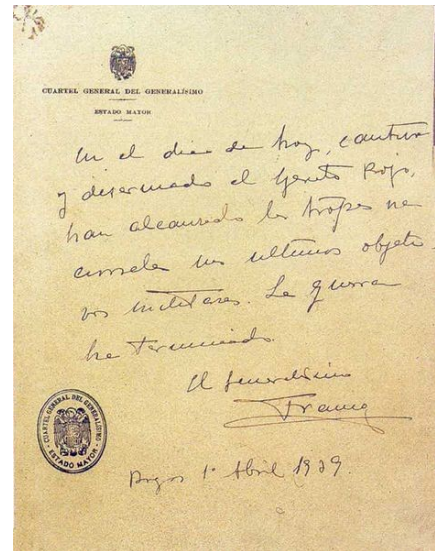 CUARTEL GENERAL DEL GENERALÍSIMO
ESTADO MAYOR
En el dia de hoy, cautivo
y desarmado el Ejercito Rojo,
han alcanzado las tropas na
cionales sus ultimos objeti
vos militares. La guerra
ha terminado.
El Generalisimo
Franco
CUARTEL GENERAL DEL GENERALISIMO
ESTADO MAYOR
Burgos 1º Abril 1939.